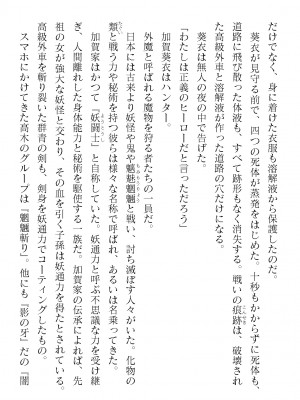 だけでなく、身に着けた衣服も溶解液から保護したのだ。
葵衣が見守る前で、四つの死体が蒸発をはじめた。十秒もかからずに死体も、
道路に飛び散った体液も、すべて跡形もなく消失する。戦いの痕跡は、破壊され
た高級外車と溶解液が作った道路の穴だけになる。
葵衣は無人の夜の中で告げた。
「わたしは正義のヒーローだと言っただろう」
加賀葵衣はハンター。
外魔と呼ばれる魔物を狩る者たちの一員だ。
日本には古来より妖怪や鬼や魑魅魍魎と戦い、討ち滅ぼす人々がいた。化物の
類と戦う力や秘術を持つ彼らは様々な名称で呼ばれ、あるいは名乗ってきた。
加賀家はかつて「妖闘士」と自称していた。妖通力と呼ぶ不思議な力を受け継
ぎ、人間離れした身体能力と秘術を駆使する一族だ。加賀家の伝承によれば、先
祖の女が強大な妖怪と交わり、その血を引く子孫は妖通力を得たとされている。
高級外車を斬り裂いた群青の剣も、剣身を妖通力でコーティングしたもの。
スマホにかけてきた高木のグループは「魍魎斬り」。他にも「影の牙」だの「闇